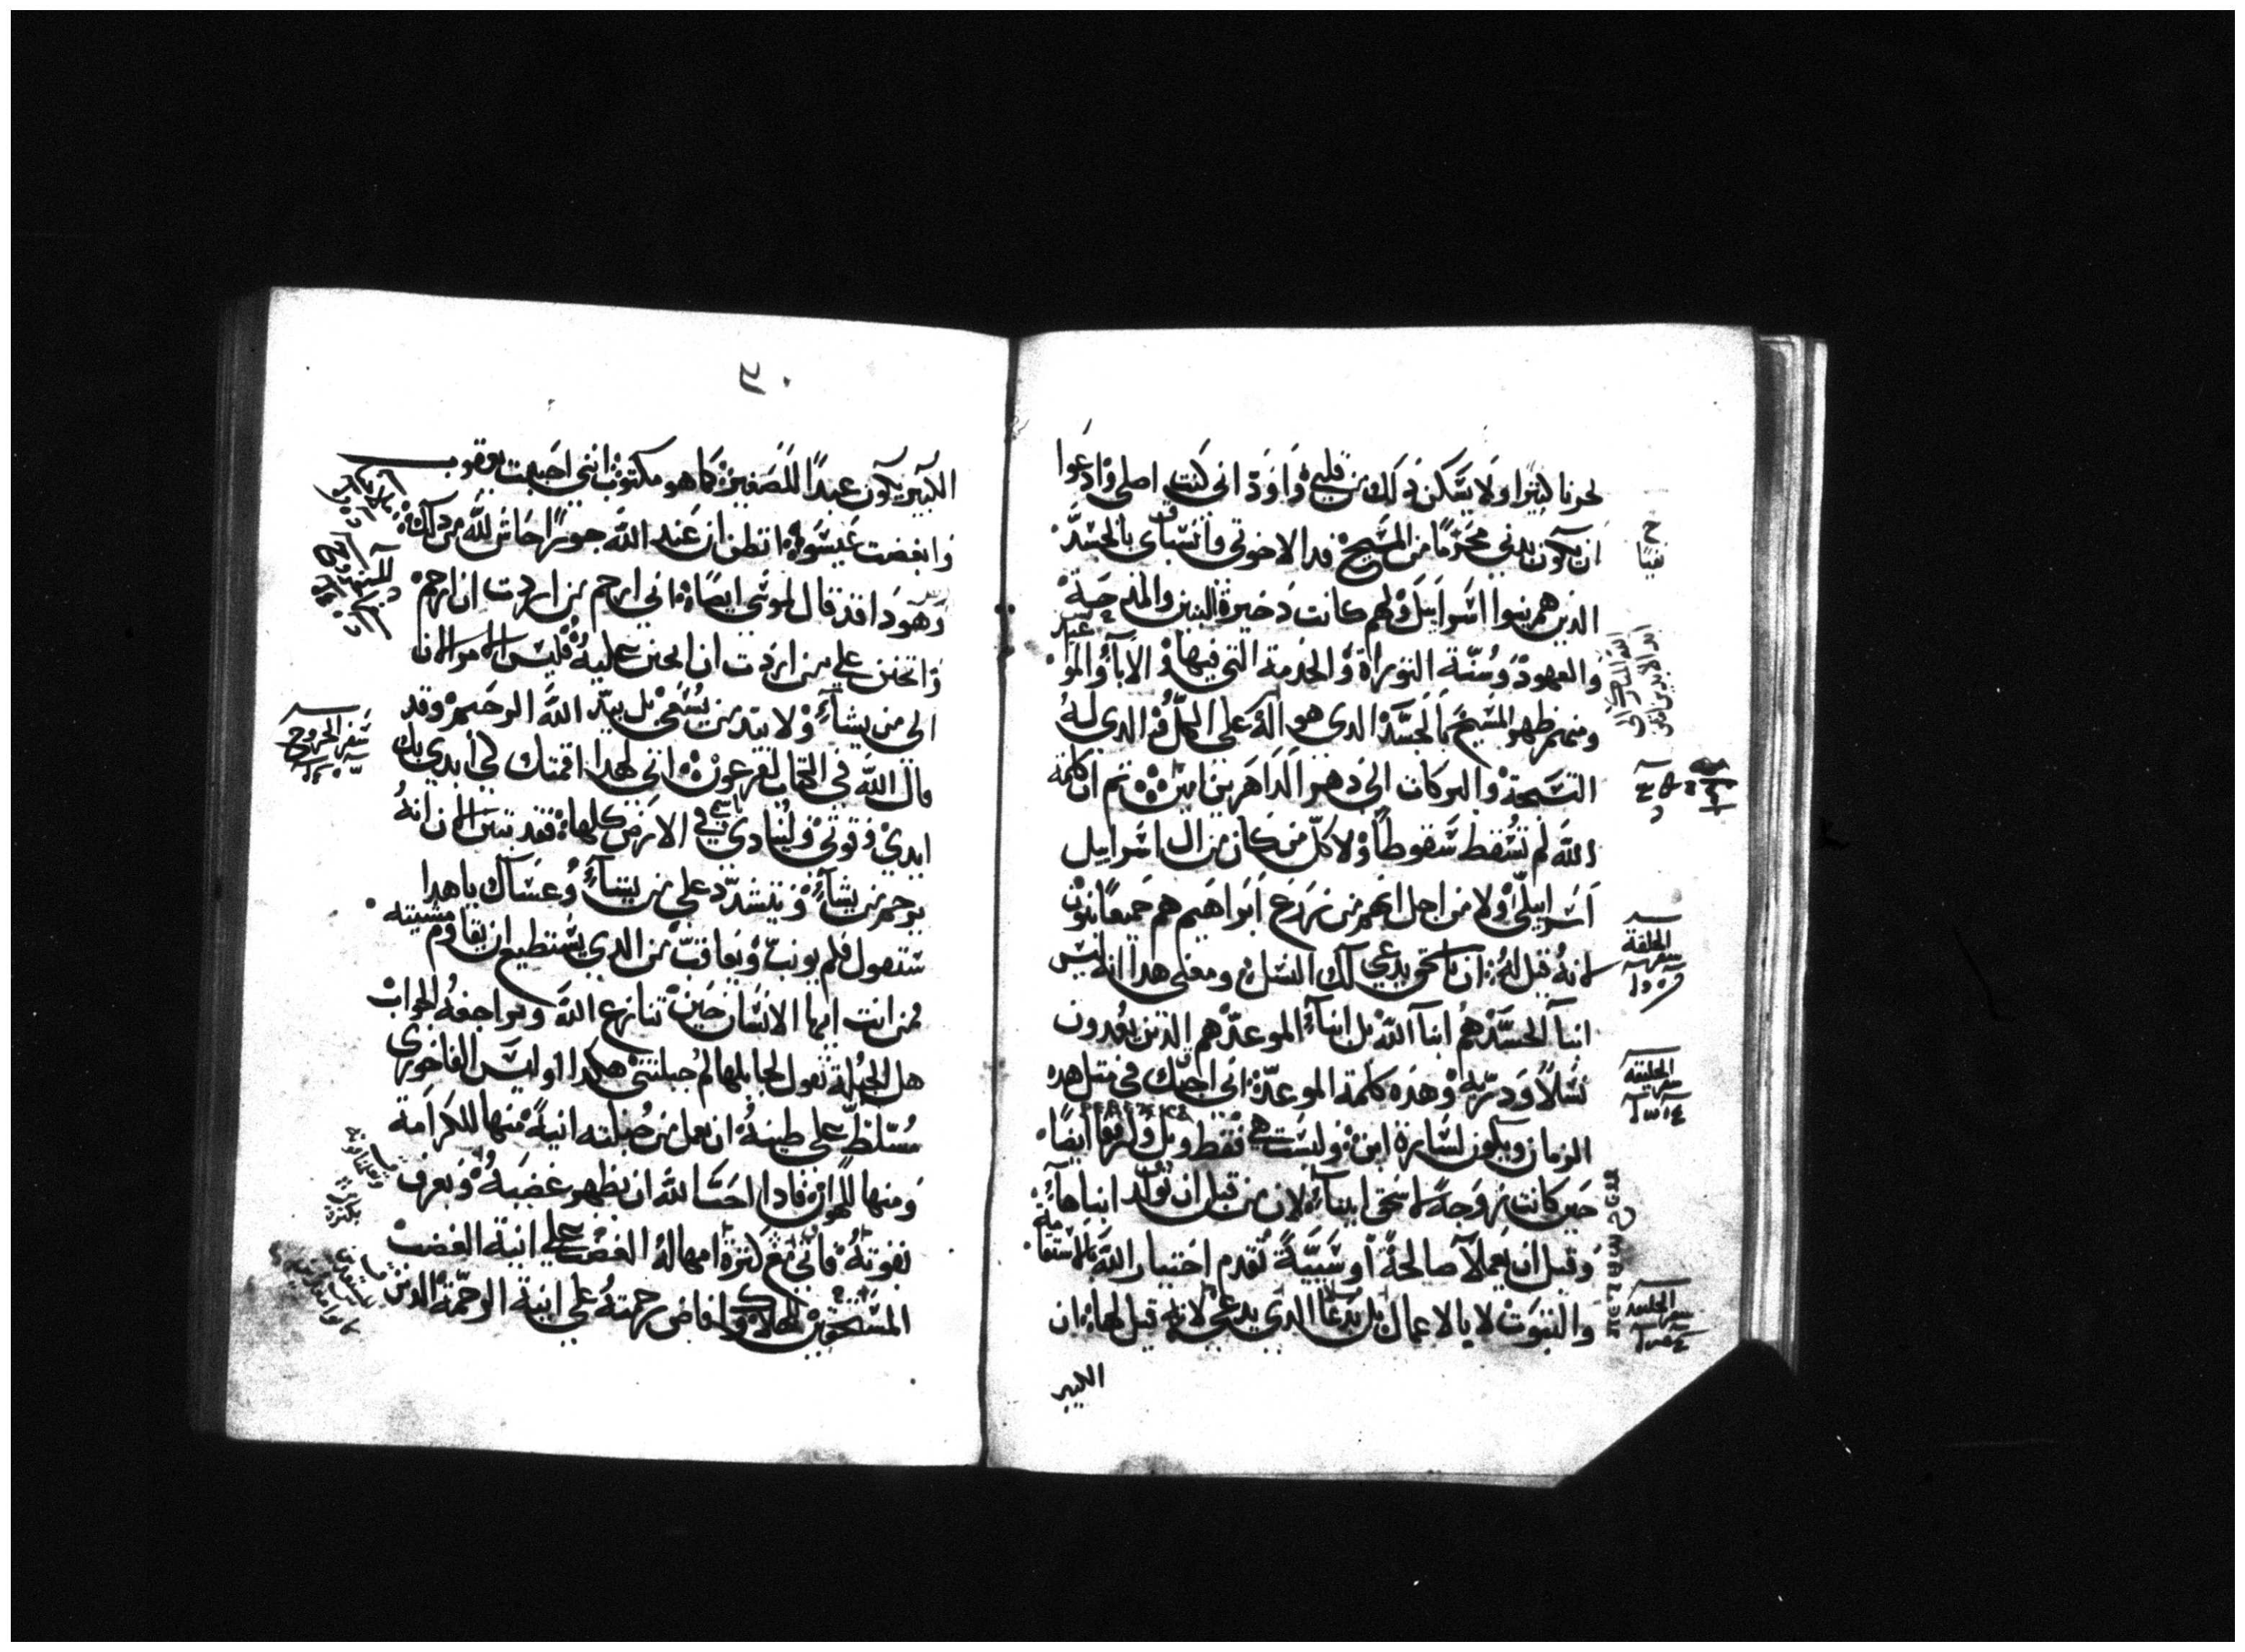 لحزنا كثيرا ولا يسكن دلك من قلبي واود اني كنت اصلي وادعوا
ان يكون بدني محرما من المسيح فدا لاخوتي وانسباي بالجسد
الذين هم بنوا اسراييل ولهم كانت دخيرة البنين والمدحة
والعهود وسنة التوراة والخدمة التي فيها والابآ والمواعيد
ومنهم ظهر المسيح بالجسد الدي هو اله على الكل الدي له
التسبحة والبركات الى دهر الداهرين امين ثم ان كلمة
الله لم تسقط سقوطا ولا كل من كان من ال اسراييل
اسراييلي ولا من اجل انهم من زرع ابراهيم هم جميعا بنون
لانه قيل له ان باسحق يدعي لك النسل ومعنى هدا انه ليس
ابنآ الجسد هم ابنآ الله بل ابنآ الموعد هم الذين يعدون
نسلا ودرية وهده كلمة الموعد اني اجيك في مثل هده
الزمان ويكون لسارة ابن وليست هي فقط بل ولرفقا ايضا
حين كانت زوجة لاسحق ابينآ لان من قبل ان تولد ابناها
وقبل ان يعملا صالحة او سيية تقدم اختيار الله بالاستقامة
والتبوت لا بالاعمال بل بدعا الدي يدعي لانه قيل لها ان
الكبير
الخلقة
سفر
الخليقة
سفر
الخليقة
سفر
الكبير يكون عبدا للصغير كما هو مكتوب انني احببت يعقوب
وابغضت عيسو اتظن ان عند الله جورا حاش لله من دلك
وهودا قد قال لموسى ايضا اني ارحم من اردت ان ارحم
واتحنن على من اردت ان اتحنن عليه فليس الامر الان
الي من يشآ ولا بيد من يسعى بل بيد الله الرحيم وقد
قال الله في الكتاب لفرعون اني لهدا اقمتك لكي ابدي بك
ايدي وقوتي ولينادي باسمي في الارض كلها فقد تبين الان انه
يرحم من يشآ ويتشدد على من يشآ وعساك ياهدا
ستقول فلم يونب ويعاقب من الدي يستطيع ان يقاوم مشيته
فمن انت ايها الانسان حين تنازع الله وتراجعه الجواب
هل الجبلة تقول لجابلها لم جبلتني هكدا اوليس الفاخوري
مسلط على طينه ان يعمل من جبلته انية منها للكرامة
ومنها للهوان فادا احب الله ان يظهر غضبه ويعرف
بقوته فاتي مع كترة امهاله الغضب على انية الغضب
المستحقين للهلاك وافاض رحمته على انية الرحمة الدين
سفر الخروج